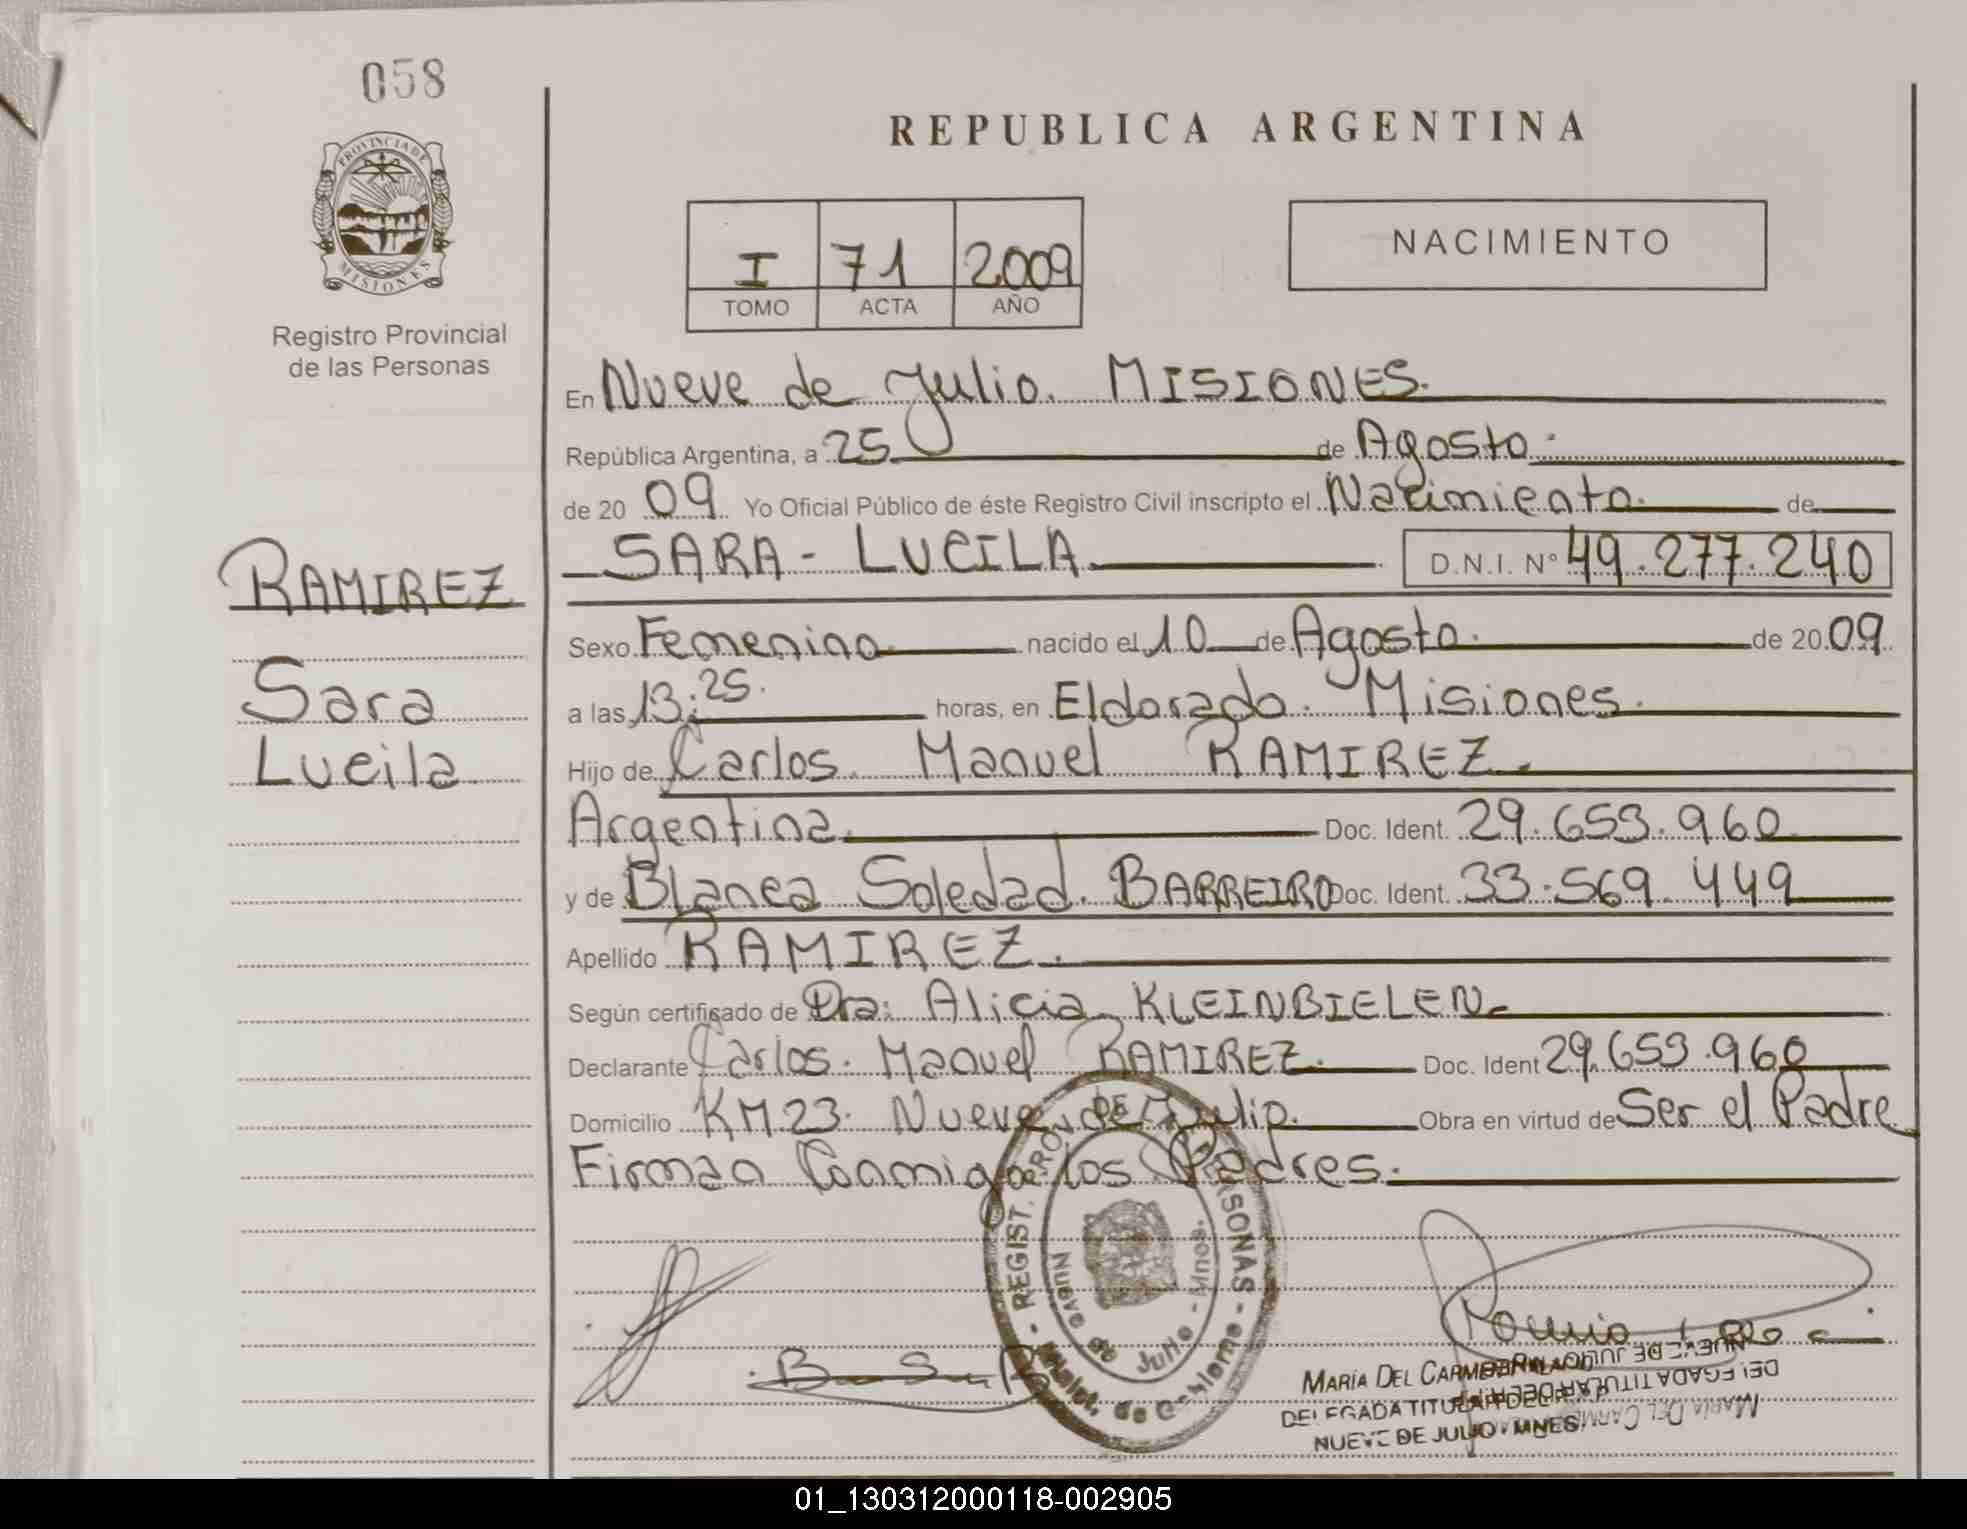 058
REPUBLICA ARGENTINA
PROVINCIA DE
MISIONES
Registro Provincial
de las Personas
I 71 2009
TOMO ACTA AÑO
NACIMIENTO
En Nueve de Julio. MISIONES.
República Argentina, a 25 de Agosto.
de 20 09 Yo Oficial Público de éste Registro Civil inscripto el Nacimiento. de
SARA - LUCILA. D.N.I. Nº 49.277.240
RAMIREZ
Sara
Lucila
Sexo Femenino nacido el 10 de Agosto. de 20 09
a las 13:25. horas, en Eldorado. Misiones.
Hijo de Carlos Manuel RAMIREZ.
Argentina. Doc. Ident. 29.653.960
y de Blanca Soledad. BARREIRO Doc. Ident. 33.569.449
Apellido RAMIREZ.
Según certificado de Dra: Alicia KLEINBIELEN.
Declarante Carlos. Manuel RAMIREZ. Doc. Ident 29.653.960
Domicilio KM 23. Nueve de Julio. Obra en virtud de Ser el Padre
Firman Conmigo los Padres.
REGIST. PERSONAS
Nueve de Julio - Mnes.
MARÍA DEL
DELEGADA TITULAR DEL
NUEVE DE JULIO - MNES
01_130312000118-002905